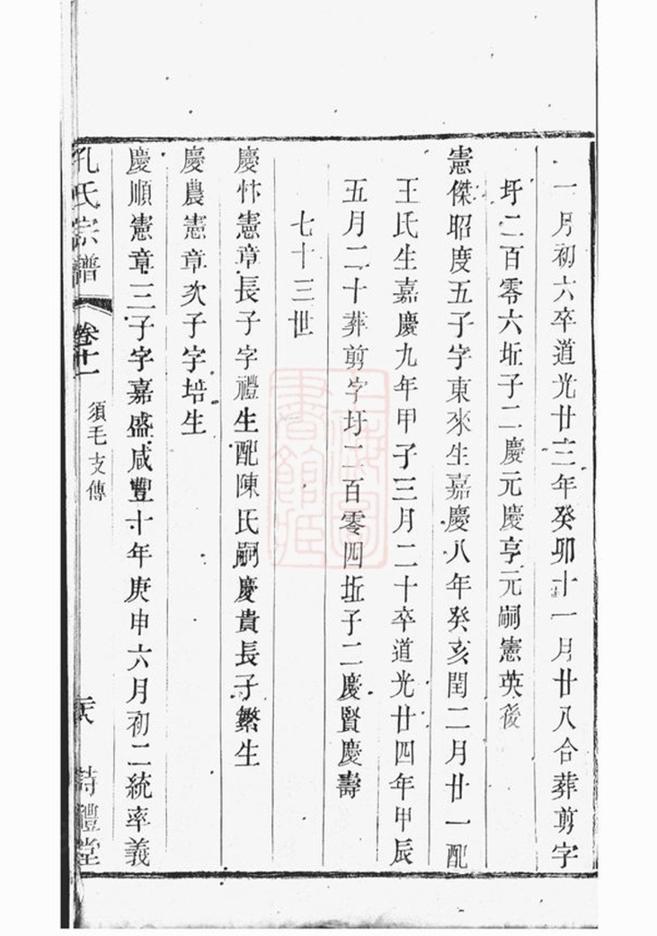 一月初六卒道光廿三年癸卯十一月廿八合葬剪字
圩二百零六坵子二慶元慶亨元嗣憲英後
憲傑昭度五子字東來生嘉慶八年癸亥閏二月廿一配
王氏生嘉慶九年甲子三月二十卒道光廿四年甲辰
五月二十葬剪字圩二百零四坵子二慶賢慶壽
七十三世
慶忭憲章長子字禮生配陳氏嗣慶貴長子繁生
慶農憲章次子字培生
慶順憲章三子字嘉盛咸豐十年庚申六月初二統率義
孔氏宗譜
卷十一
須毛支傳
詩禮堂
上海圖書館藏